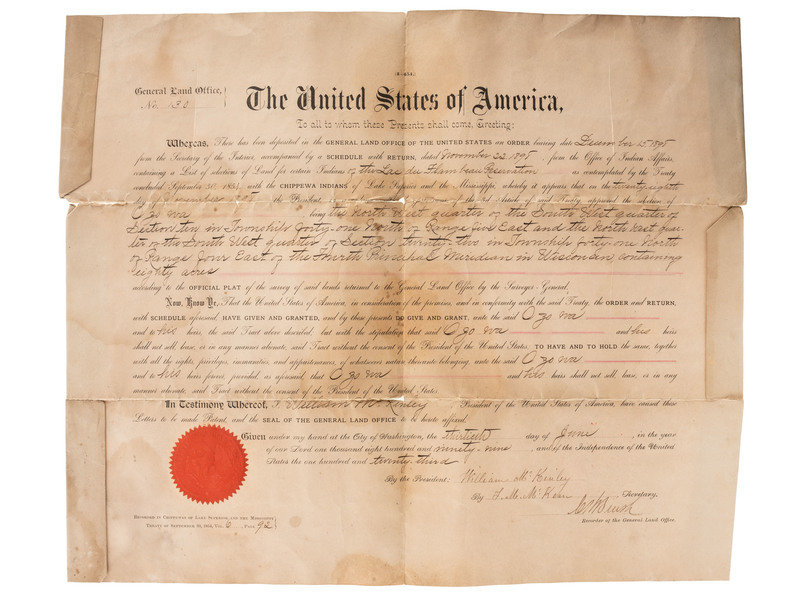 General Land Office,
No. 130
The United States of America,
To all to whom these Presents shall come, Greeting:
Whereas, There has been deposited in the GENERAL LAND OFFICE OF THE UNITED STATES an ORDER bearing date December 5, 1898
from the Secretary of the Interior, accompanied by a SCHEDULE WITH RETURN, dated November 22, 1898, from the Office of Indian Affairs,
containing a List of selections of Land for certain Indians of the Lac du Flambeau Reservation as contemplated by the Treaty
concluded September 30, 1854, with the CHIPPEWA INDIANS of Lake Superior and the Mississippi, whereby it appears that on the twenty eighth
day of November the President of said Treaty, approved the selection of
O zo wa being the North West quarter of the South West quarter of
Section ten in Township forty-one North of Range five East and the North East quar-
ter of the South West quarter of Section twenty-two in Township forty-one North
of Range four East of the Fourth Principal Meridian in Wisconsin, containing
eighty acres
according to the OFFICIAL PLAT of the survey of said lands returned to the General Land Office by the Surveyor-General.
Now, Know Ye, That the United States of America, in consideration of the premises, and in conformity with the said Treaty, the ORDER and RETURN,
with SCHEDULE aforesaid, HAVE GIVEN AND GRANTED, and by these presents DO GIVE AND GRANT, unto the said O zo wa
and to his heirs, the said Tract above described, but with the stipulation that said O zo wa and his heirs
shall not sell, lease, or in any manner alienate, said Tract without the consent of the President of the United States; TO HAVE AND TO HOLD the same, together
with all the rights, privileges, immunities, and appurtenances, of whatsoever nature thereunto belonging, unto the said O zo wa
and to his heirs forever, provided, as aforesaid, that O zo wa and his heirs shall not sell, lease, or in any
manner alienate, said Tract without the consent of the President of the United States.
In Testimony Whereof, I, William McKinley, President of the United States of America, have caused these
Letters to be made Patent, and the SEAL OF THE GENERAL LAND OFFICE to be hereto affixed.
Given under my hand at the City of Washington, the thirtieth day of June, in the year
of our Lord one thousand eight hundred and ninety-nine, and of the Independence of the United
States the one hundred and twenty-third
By the President: William McKinley
By F. M. McKean Secretary.
Recorder of the General Land Office.
RECORDED IN CHIPPEWAS OF LAKE SUPERIOR AND THE MISSISSIPPI
TREATY OF SEPTEMBER 30, 1854, VOL. 6, PAGE 92